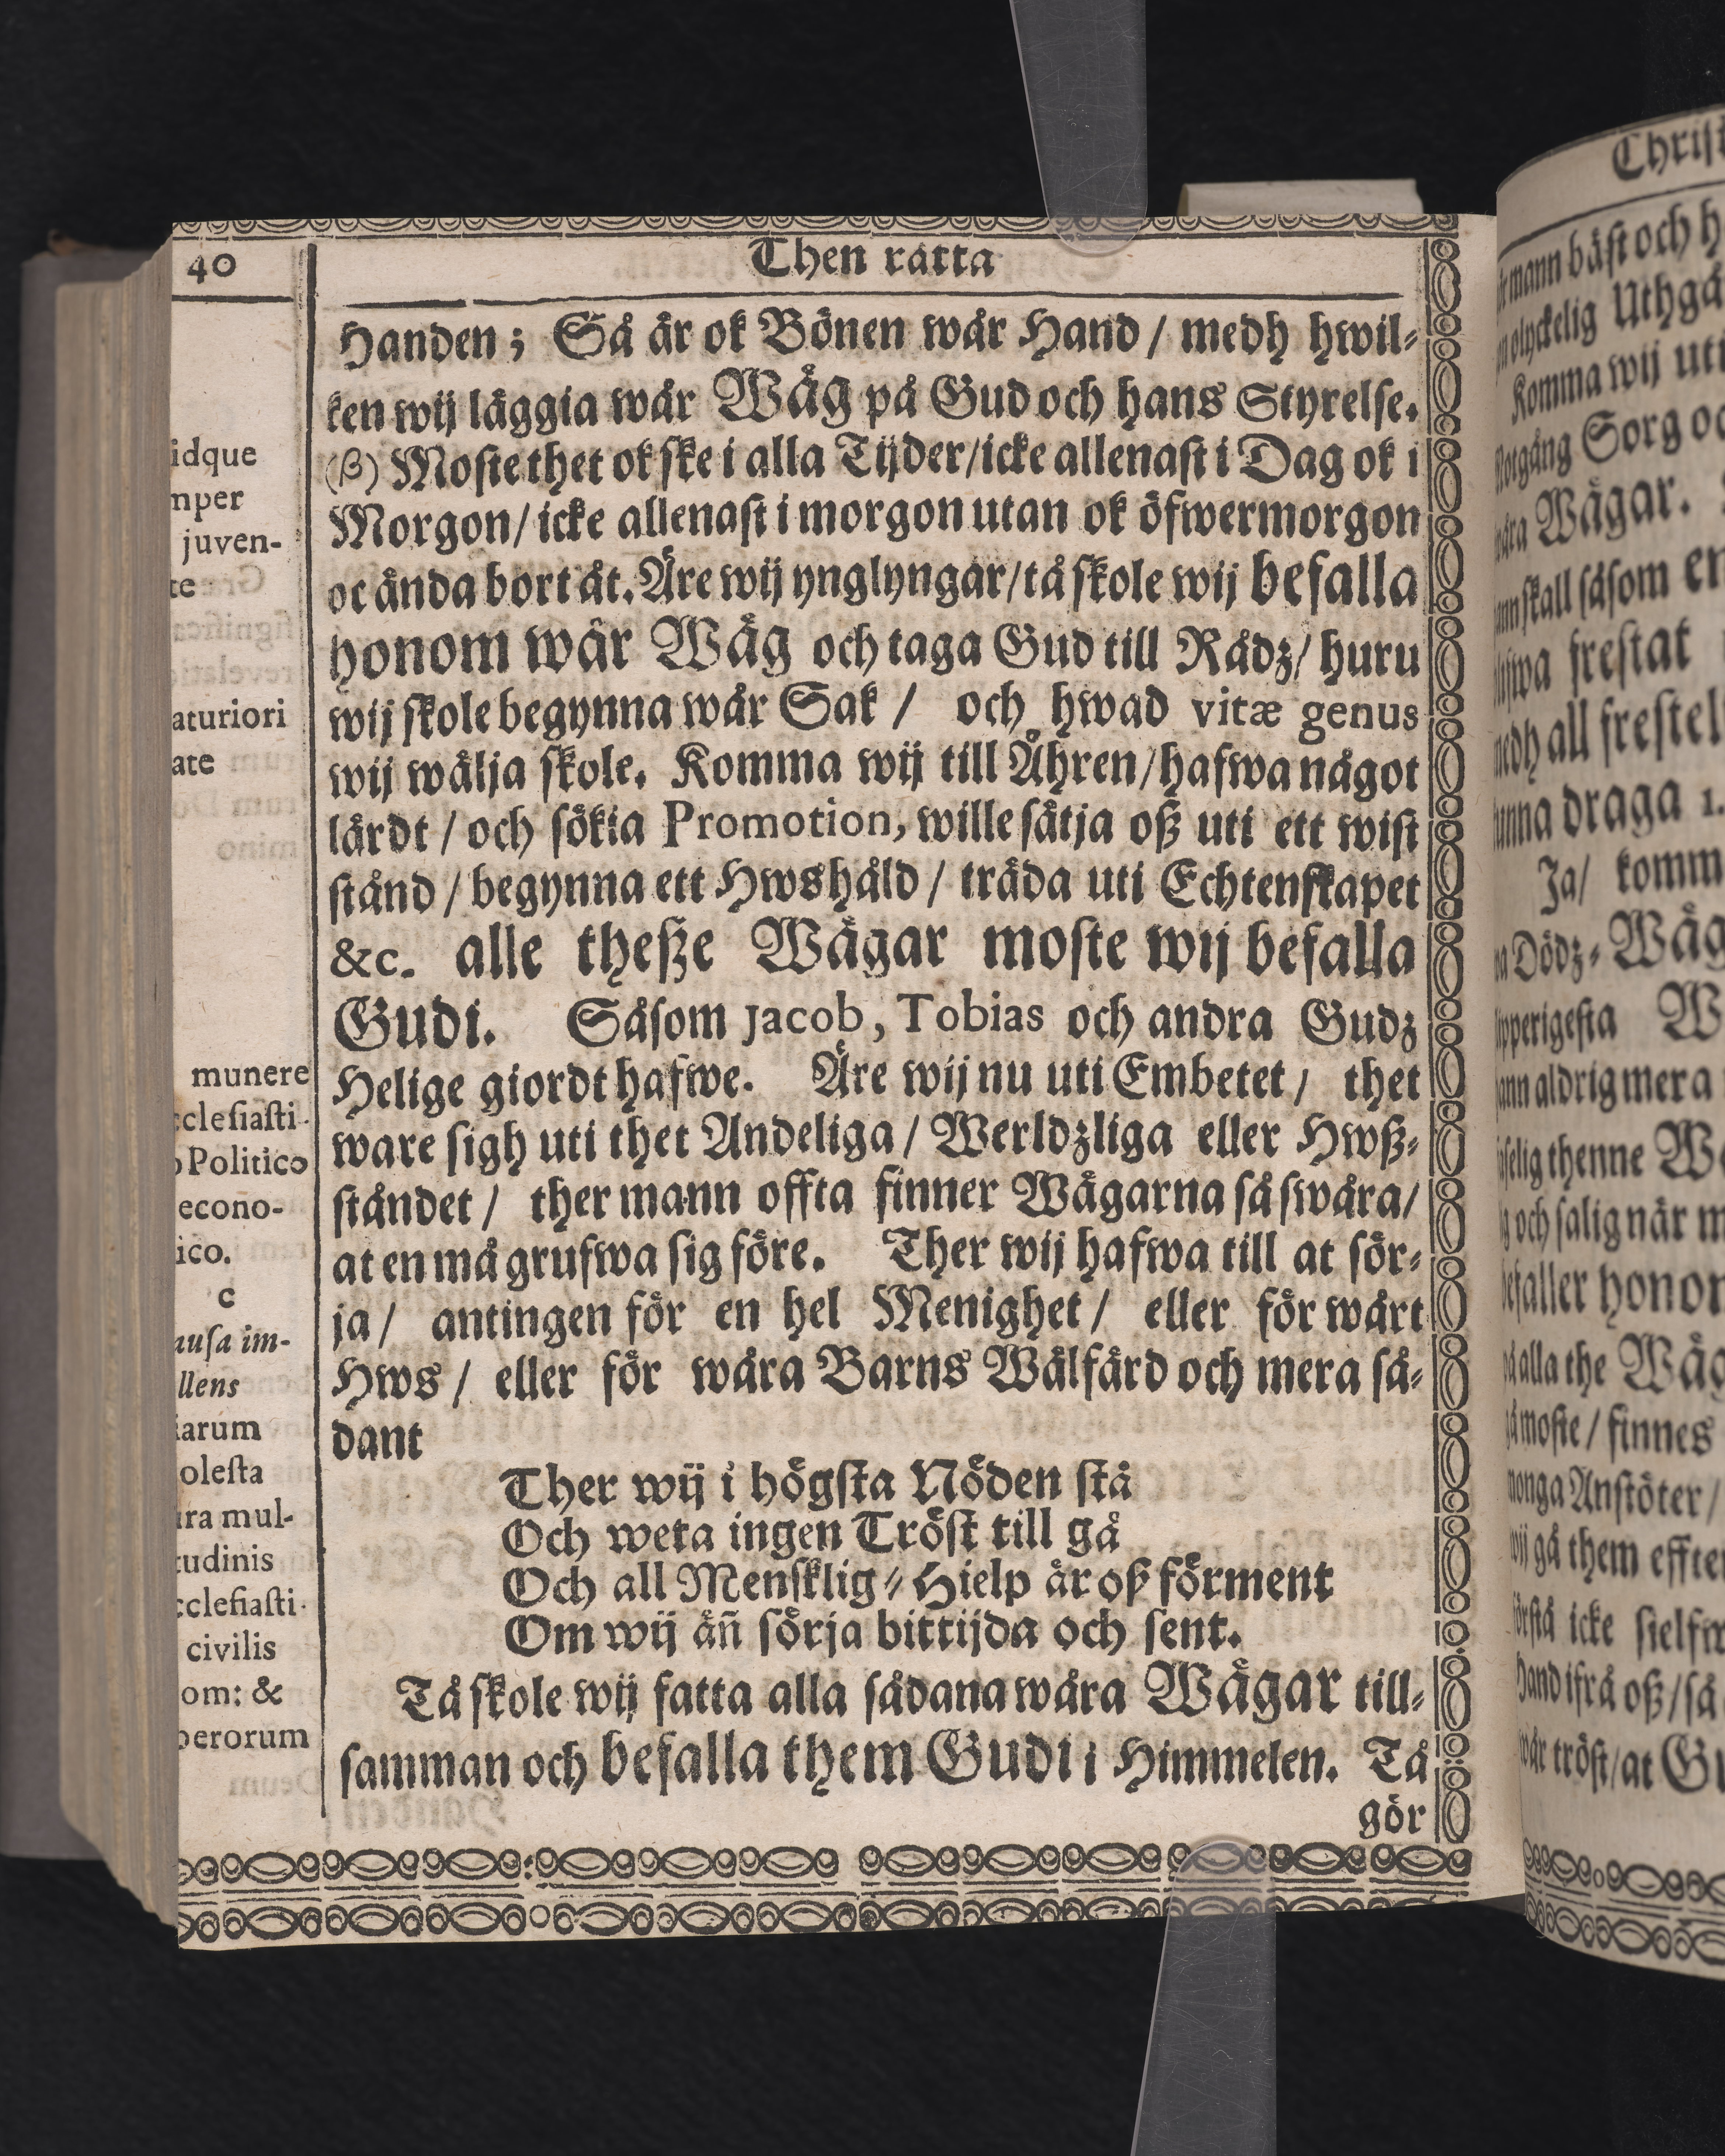 40
Then rätta
Handen; Så är ok Bönen wår Hand / medh hwil-
ken wij läggia wår Wäg på Gud och hans Styrelse.
(β) Moste thet ok ske i alla Tijder/icke allenast i Dag ok i
Morgon/ icke allenast i morgon utan ok öfwermorgon
oc ända bort åt. Äre wij ynglyngar/tå skole wij befalla
honom wår Wäg och taga Gud till Rådz/ huru
wij skole begynna wår Sak / och hwad vitæ genus
wij wälja skole. Komma wij till Åhren/hafwa något
lärdt / och sökia Promotion, wille sätja oß uti ett wist
stånd / begynna ett Hwshåld / träda uti Echtenskapet
&c. alle theßze Wägar moste wij befalla
Gudi. Såsom Jacob, Tobias och andra Gudz
Helige giordt hafwe. Äre wij nu uti Embetet / thet
ware sigh uti thet Andeliga / Werldzliga eller Hwß-
ståndet / ther mann offta finner Wägarna så swåra/
at en må grufwa sig före. Ther wij hafwa till at sör-
ja / antingen för en hel Menighet / eller för wårt
Hws / eller för wåra Barns Wälfärd och mera så-
dant
Ther wij i högsta Nöden stå
Och weta ingen Tröst till gå
Och all Mensklig-Hielp är oß förment
Om wij äñ sörja bittijda och sent.
Tå skole wij fatta alla sådana wåra Wägar till-
samman och befalla them Gudi i Himmelen. Tå
gör
idque
mper
juven-
te
aturiori
ate
munere
cclesiasti-
o Politico
econo-
ico.
c
ausa im-
llens
iarum
olesta
ura mul-
tudinis
cclesiasti-
civilis
om: &
perorum
Christ
mann bäst och h
olyckelig Uthgå
Komma wij uti
Motgång Sorg oc
wåra Wägar.
skall såsom en
frestat
medh all frestel
kunna draga 1.
Ja/ komm
Dödz-Wäg
W
mann aldrig mera
selig thenne Wä
och salig när m
befaller honom
alla the Wäg
moste / finnes
Anstöter /
wij gå them effter
förstå icke sielfw
Hand ifrå oß/så
wår tröst/at Gu